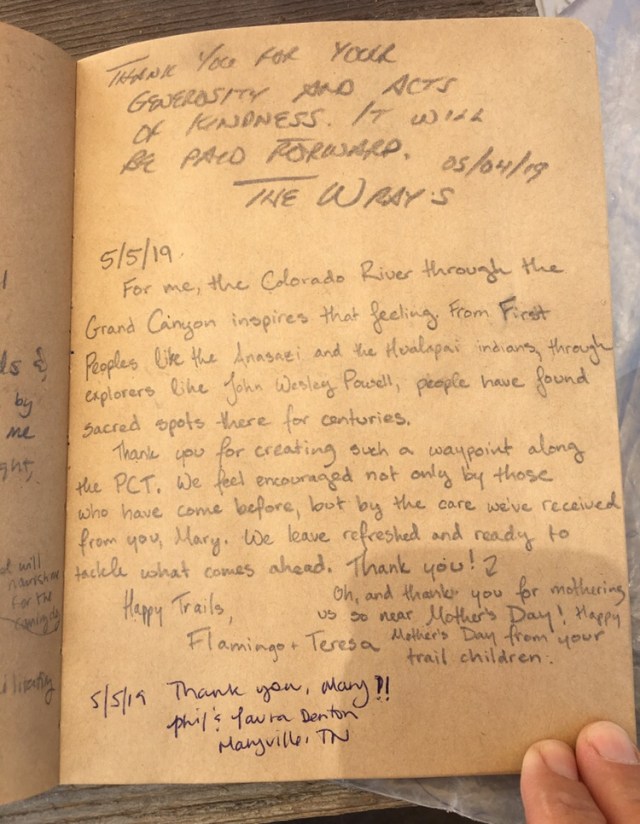 THANK YOU FOR YOUR
GENEROSITY AND ACTS
OF KINDNESS. IT WILL
BE PAID FORWARD. 05/04/19
THE WRAY'S
5/5/19.
For me, the Colorado River through the
Grand Canyon inspires that feeling. From First
Peoples like the Anasazi and the Hualapai indians, through
explorers like John Wesley Powell, people have found
sacred spots there for centuries.
Thank you for creating such a waypoint along
the PCT. We feel encouraged not only by those
who have come before, but by the care we've received
from you, Mary. We leave refreshed and ready to
tackle what comes ahead. Thank you!
Happy Trails,
Flamingo + Teresa
Oh, and thank you for mothering
us so near Mother's Day! Happy
Mother's Day from your
trail children.
5/5/19 Thank you, Mary!!
Phil & Laura Denton
Maryville, TN
by
me
will
For the